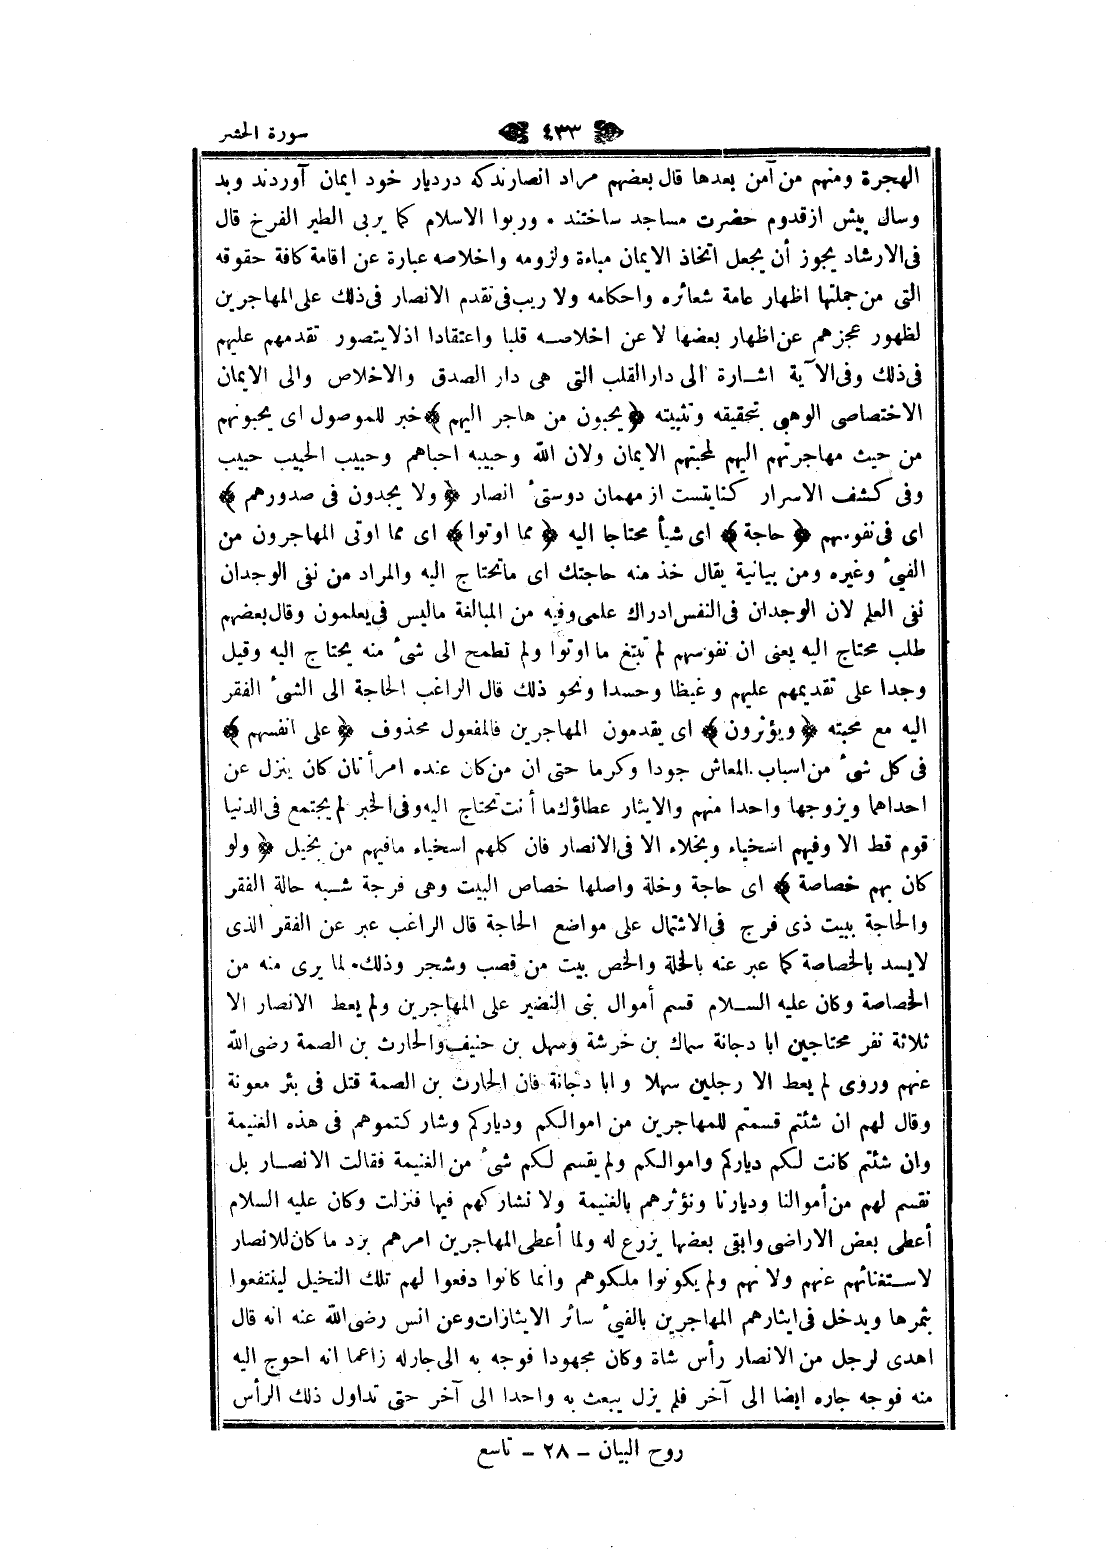 سورة الحشر ﴿ ٤٣٣ ﴾
الهجرة ومنهم من آمن بعدها قال بعضهم مراد انصارندكه درديار خود ايمان آوردند وبد
وسال پيش ازقدوم حضرت مساجد ساختند ٠ وربوا الاسلام كما يربى الطير الفرخ قال
فى الارشاد يجوز أن يجعل اتخاذ الايمان مباءة ولزومه واخلاصه عبارة عن اقامة كافة حقوقه
التى من جملتها اظهار عامة شعائره واحكامه ولا ريب فى تقدم الانصار فى ذلك على المهاجرين
لظهور عجزهم عن اظهار بعضها لا عن اخلاصه قلبا واعتقادا اذ لا يتصور تقدمهم عليهم
فى ذلك وفى الآية اشارة الى دار القلب التى هى دار الصدق والاخلاص والى الايمان
الاختصاصى الوهبى بتحقيقه وتثبيته ﴿ يحبون من هاجر اليهم ﴾ خبر للموصول اى يحبونهم
من حيث مهاجرتهم اليهم لمحبتهم الايمان ولان الله وحبيبه احباهم وحبيب الحبيب حبيب
وفى كشف الاسرار كنايتست از مهمان دوستىٔ انصار ﴿ ولا يجدون فى صدورهم ﴾
اى فى نفوسهم ﴿ حاجة ﴾ اى شيأ محتاجا اليه ﴿ مما اوتوا ﴾ اى مما اوتى المهاجرون من
الفىٔ وغيره ومن بيانية يقال خذ منه حاجتك اى ما تحتاج اليه والمراد من نفى الوجدان
نفى العلم لان الوجدان فى النفس ادراك علمى وفيه من المبالغة ماليس فى يعلمون وقال بعضهم
طلب محتاج اليه يعنى ان نفوسهم لم تبتغ ما اوتوا ولم تطمح الى شىٔ منه يحتاج اليه وقيل
وجدا على تقديمهم عليهم وغيظا وحسدا ونحو ذلك قال الراغب الحاجة الى الشىٔ الفقر
اليه مع محبته ﴿ ويؤثرون ﴾ اى يقدمون المهاجرين فالمفعول محذوف ﴿ على انفسهم ﴾
فى كل شىٔ من اسباب المعاش جودا وكرما حتى ان من كان عنده امرأتان كان ينزل عن
احداهما ويزوجها واحدا منهم والايثار عطاؤك ما أنت تحتاج اليه وفى الخبر لم يجتمع فى الدنيا
قوم قط الا وفيهم اسخياء وبخلاء الا فى الانصار فان كلهم اسخياء مافيهم من بخيل ﴿ ولو
كان بهم خصاصة ﴾ اى حاجة وخلة واصلها خصاص البيت وهى فرجة شبه حالة الفقر
والحاجة ببيت ذى فرج فى الاشتمال على مواضع الحاجة قال الراغب عبر عن الفقر الذى
لايسد بالخصاصة كما عبر عنه بالخلة والخص بيت من قصب وشجر وذلك لما يرى منه من
الخصاصة وكان عليه السلام قسم أموال بنى النضير على المهاجرين ولم يعط الانصار الا
ثلاثة نفر محتاجين ابا دجانة سماك بن خرشة وسهل بن حنيف والحارث بن الصمة رضى الله
عنهم وروى لم يعط الا رجلين سهلا وابا دجانة فان الحارث بن الصمة قتل فى بئر معونة
وقال لهم ان شئتم قسمتم للمهاجرين من اموالكم ودياركم وشاركتموهم فى هذه الغنيمة
وان شئتم كانت لكم دياركم واموالكم ولم يقسم لكم شىٔ من الغنيمة فقالت الانصار بل
نقسم لهم من أموالنا وديارنا ونؤثرهم بالغنيمة ولا نشاركهم فيها فنزلت وكان عليه السلام
أعطى بعض الاراضى وابقى بعضها يزرع له ولما أعطى المهاجرين امرهم برد ما كان للانصار
لاستغنائهم عنهم ولانهم ولم يكونوا ملكوهم وانما كانوا دفعوا لهم تلك النخيل لينتفعوا
بثمرها ويدخل فى ايثارهم المهاجرين بالفىٔ سائر الايثارات وعن انس رضى الله عنه انه قال
اهدى لرجل من الانصار رأس شاة وكان مجهودا فوجه به الى جار له زاعما انه احوج اليه
منه فوجه جاره ايضا الى آخر فلم يزل يبعث به واحدا الى آخر حتى تداول ذلك الرأس
روح البيان ـ ٢٨ ـ تاسع